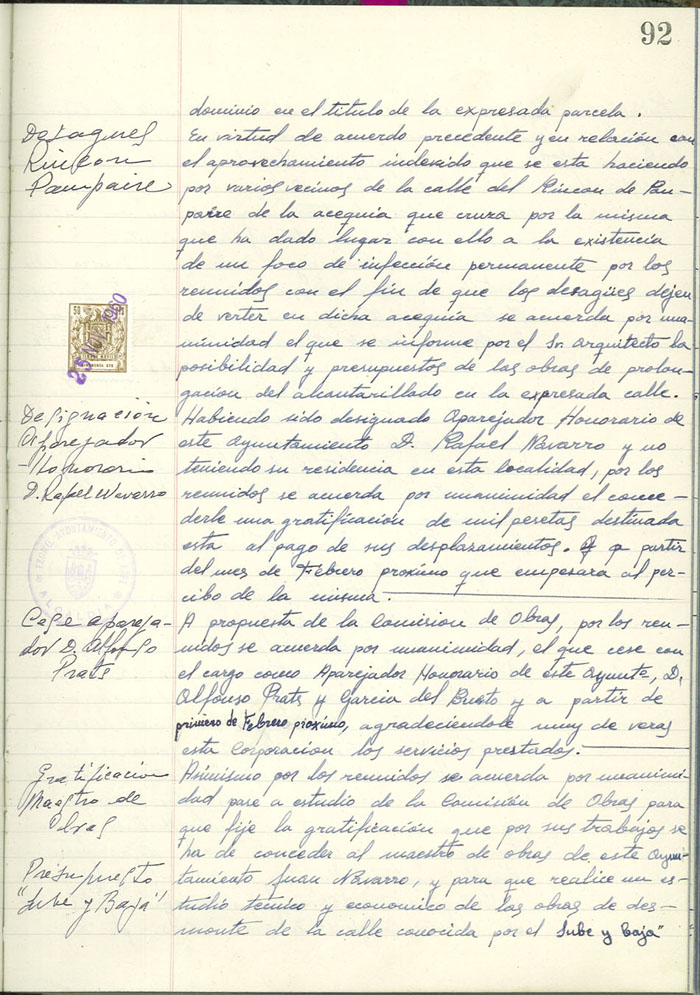 92
dominio en el titulo de la expresada parcela.
Desagues
Rincon
Pampaire
En virtud de acuerdo precedente y en relación con
el aprovechamiento indevido que se esta haciendo
por varios vecinos de la calle del Rincon de Pam-
paire de la acequia que cruza por la misma
que ha dado lugar con ello a la existencia
de un foco de infección permanente por los
reunidos con el fin de que los desagües dejen
de verter en dicha acequia se acuerda por una-
nimidad el que se informe por el Sr. Arquitecto la
posibilidad y presupuestos de las obras de prolon-
gacion del alcantarillado en la expresada calle.
50
1960
Designación
Aparejador
Honorario
D. Rafael Navarro
Habiendo sido designado Aparejador Honorario de
este Ayuntamiento D. Rafael Navarro y no
teniendo su residencia en esta localidad, por los
reunidos se acuerda por unanimidad el conce-
derle una gratificación de mil pesetas destinada
esta al pago de sus desplazamientos. a partir
del mes de Febrero proximo que empesara al per-
cibo de la misma.
AYUNTAMIENTO DE
ALCALDIA
Cese apareja-
dor D. Alfonso
Prats
A propuesta de la Comision de Obras, por los reu-
nidos se acuerda por unanimidad, el que cese con
el cargo como Aparejador Honorario de este Ayuntº, D.
Alfonso Prats y Garcia del Busto y a partir de
primero de Febrero proximo, agradeciendole muy de veras
esta Corporacion los servicios prestados.
Gratificacion
Maestro de
Obras
Asimismo por los reunidos se acuerda por unanimi-
dad pase a estudio de la Comisión de Obras para
que fije la gratificación que por sus trabajos se
ha de conceder al maestro de obras de este Ayun-
tamiento Juan Navarro, y para que realice un es-
tudio tecnico y economico de las obras de des-
monte de la calle conocida por el Sube y baja"
Presupuesto
"Sube y Baja"